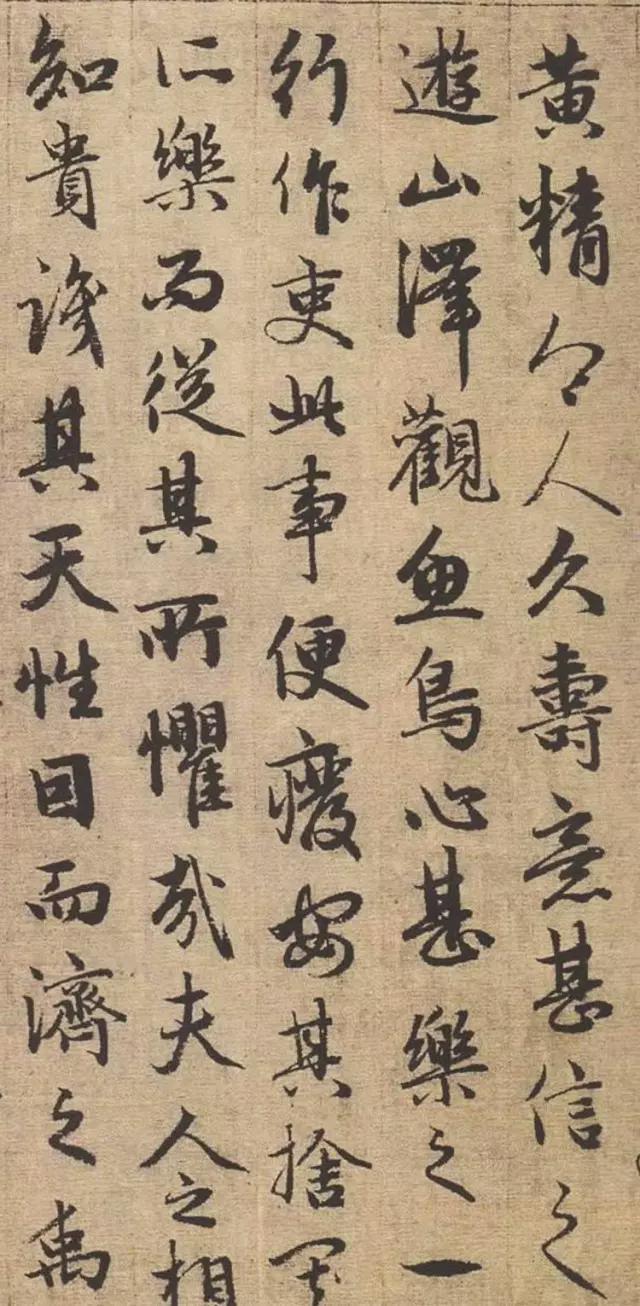 黄精令人久壽意甚信之
遊山澤觀魚鳥心甚樂之一
行作吏此事便癈安其捨
所樂而從其所懼哉夫人之相
知貴識其天性因而濟之禹